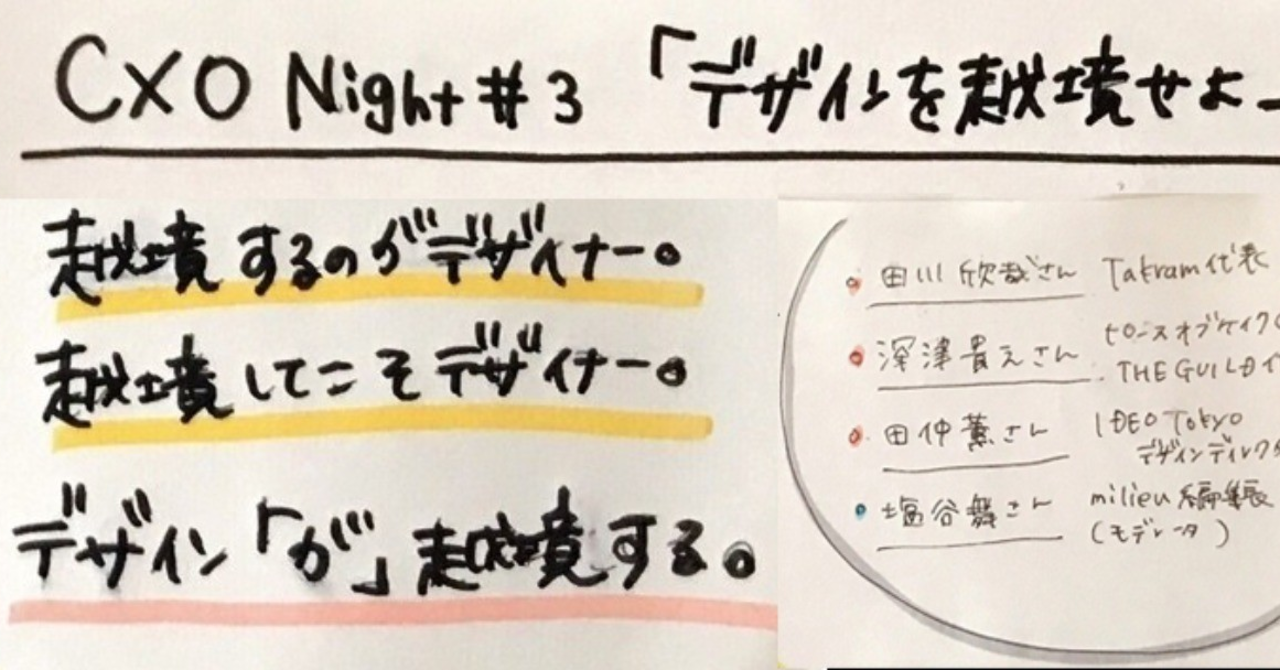 CXO Night #3 「デザインを越境せよ
越境するのがデザイナー。
越境してこそデザイナー。
デザイン「が」越境する。
田川欣哉さん Takram代表
深津貴之さん ピースオブケイク
THE GUILD
田仲薫さん IDEO Tokyo
デザインディレクタ
塩谷舞さん milieu 編集長
(モデレータ)